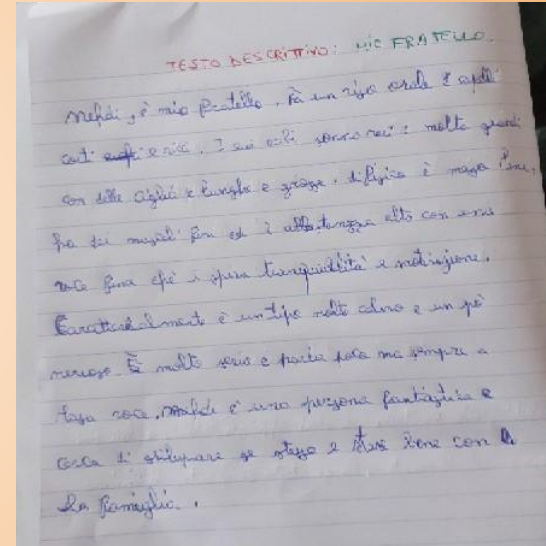 TESTO DESCRITTIVO: MIO FRATELLO.
Mehdi, è mio fratello. Ha un viso ovale e capelli
corti e ricci. I suoi occhi sonno neri e molto grandi
con delle ciglia e lunghe e grosse. di fisico è magro
ha dei muscoli fin ed è abbastanza alto con una
voce fina che ispira tranquillità e motivazione.
Caratterialmente è un tipo molto calmo e un pò
nervoso. È molto serio e parla poco ma sempre a
bassa voce. è una persona fantastica e
cerca di sviluppare se stesso e stare bene con
la famiglia.